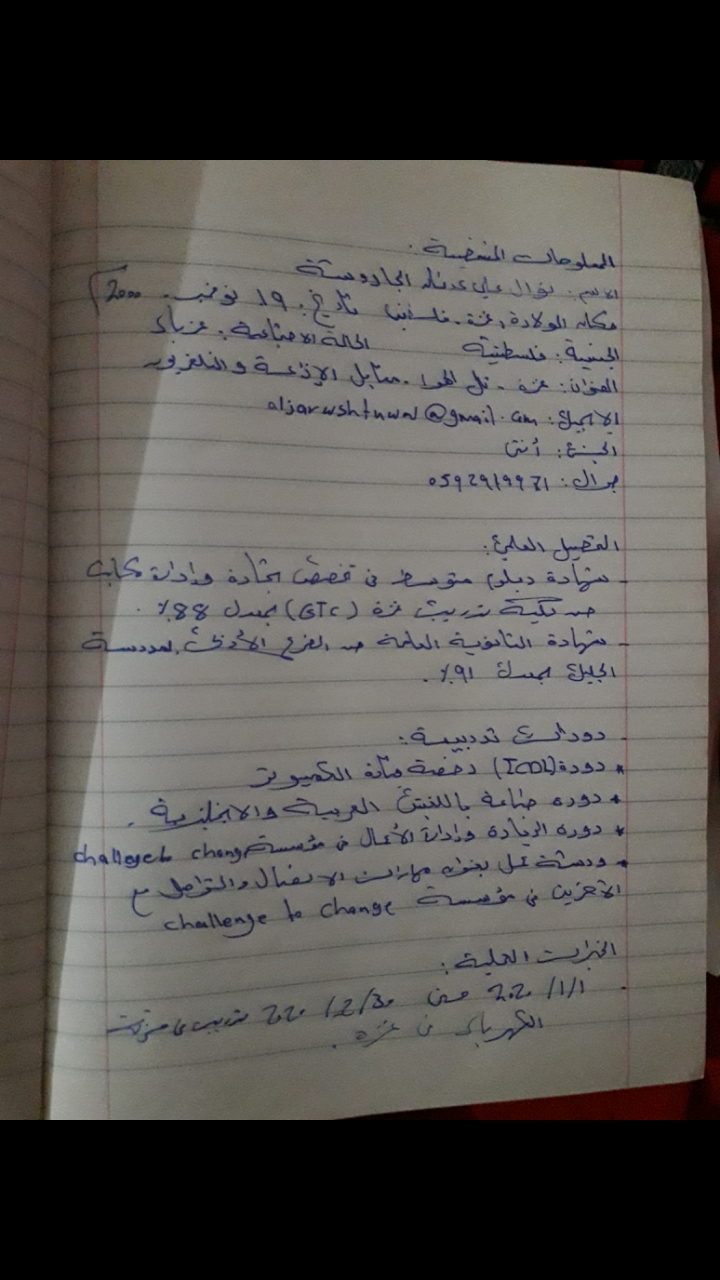 المعلومات الشخصية:
الاسم: نوال علي عدنان الجاروشة
مكان الولادة: غزة - فلسطين تاريخ: ١٩ نوفمبر - 2000
الجنسية: فلسطينية الحالة الاجتماعية: عزباء
العنوان: غزة - تل الهوا - مقابل الإذاعة والتلفزيون
الايميل: @gmail.com
الجنس: أنثى
جوال:
التحصيل العلمي:
- شهادة دبلوم متوسط في تخصص تجارة وإدارة مكاتب
من كلية تدريب غزة (GTC) بمعدل 88٪.
- شهادة الثانوية العامة من الفرع الأدبي بمدرسة
الجليل بمعدل ٩١٪.
- دورات تدريبية:
* دورة (ICDL) رخصة قيادة الكمبيوتر
* دورة طباعة باللغتين العربية والانجليزية.
* دورة الريادة وإدارة الأعمال في مؤسسة challenge to change
* ورشة عمل بعنوان مهارات الاتصال والتواصل مع
الآخرين في مؤسسة challenge to change
الخبرات العملية:
- 2020/1/1 حتى 2020/2/30 تدريب في شركة
الكهرباء في غزة.